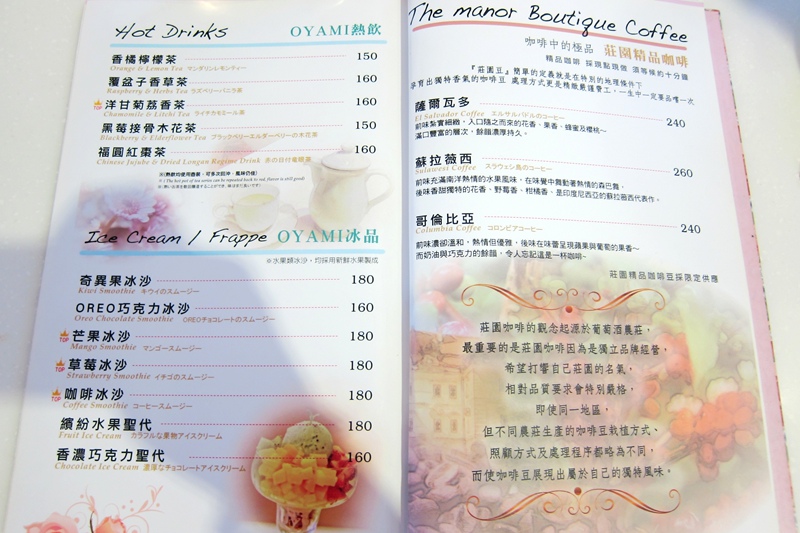 Hot Drinks OYAMI熱飲
香橘檸檬茶 150
Orange & Lemon Tea マンダリンレモンティー
覆盆子香草茶 160
Raspberry & Herbs Tea ラズベリーバニラ茶
TOP 洋甘菊荔香茶 160
Chamomile & Litchi Tea ライチカモミール茶
黑莓接骨木花茶 150
Blackberry & Elderflower Tea ブラックベリーエルダーベリーの木花茶
福圓紅棗茶 160
Chinese Jujube & Dried Longan Regime Drink
※(熱飲均使用壺裝，可多次回沖，風味仍佳)
Ice Cream / Frappe OYAMI冰品
※水果類冰沙，均採用新鮮水果製成
奇異果冰沙 180
Kiwi Smoothie キウイのスムージー
OREO巧克力冰沙 160
Oreo Chocolate Smoothie OREOチョコレートのスムージー
TOP 芒果冰沙 180
Mango Smoothie マンゴースムージー
TOP 草莓冰沙 180
Strawberry Smoothie イチゴのスムージー
TOP 咖啡冰沙 180
Coffee Smoothie コーヒースムージー
繽紛水果聖代 180
Fruit Ice Cream カラフルな果物アイスクリーム
香濃巧克力聖代 160
Chocolate Ice Cream 濃厚なチョコレートアイスクリーム
The manor Boutique Coffee
咖啡中的極品 莊園精品咖啡
精品咖啡 採現點現做 須等候約十分鐘
『莊園豆』簡單的定義就是在特別的地理條件下
孕育出獨特香氣的咖啡豆 處理方式更是精緻嚴謹費工，一生中一定要品嚐一次
薩爾瓦多 240
El Salvador Coffee エルサルバドルのコーヒー
前味紮實細緻，入口隨之而來的花香、果香、蜂蜜及櫻桃～
滿口豐富的層次，餘韻濃厚持久。
蘇拉薇西 260
Sulawest Coffee スラウェシ島のコーヒー
前味充滿南洋熱情的水果風味，在味覺中舞動著熱情的森巴舞，
後味香甜獨特的花香、野莓香、柑橘香、是印度尼西亞的蘇拉薇西代表作。
哥倫比亞 240
Columbia Coffee コロンビアコーヒー
前味濃郁溫和，熱情但優雅，後味在味蕾呈現蘋果與葡萄的果香～
而奶油與巧克力的餘韻，令人忘記這是一杯咖啡~
莊園精品咖啡豆採限定供應
莊園咖啡的觀念起源於葡萄酒農莊，
最重要的是莊園咖啡因為是獨立品牌經營，
希望打響自己莊園的名氣，
相對品質要求會特別嚴格，
即使同一地區，
但不同農莊生產的咖啡豆栽植方式、
照顧方式及處理程序都略為不同，
而使咖啡豆展現出屬於自己的獨特風味。